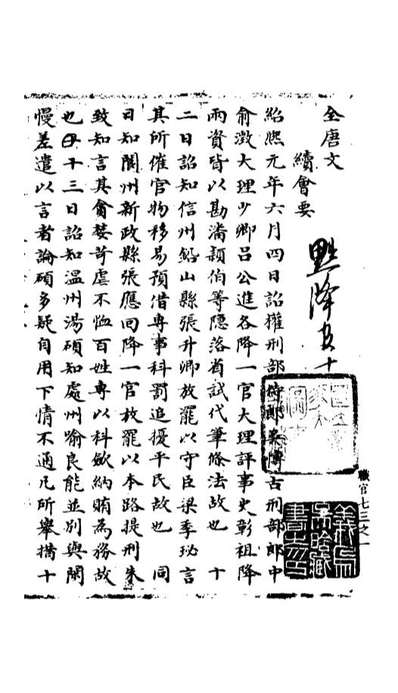 全唐文
續會要
黜降五十
紹熙元年六月四日詔權刑部侍郎吳博古刑部郎中
俞澂大理少卿吕公進各降一官大理評事史彰祖降
兩資皆以勘潘穎伯等應洛省試代筆條法故也 十
二日詔知信州鉛山縣張升卿放罷以守臣梁季珌言
其所催官物移易預借專事科罰追擾平民故也 同
日知閬州新政縣張應回降一官放罷以本路提刑朱
致知言其貪婪苛虐不恤百姓專以科歛納賄為務故
也 十三日詔知溫州湯碩知處州喻良能並别與閑
慢差遣以言者論碩多疑自用下情不通凡所舉措十
職官七三之一